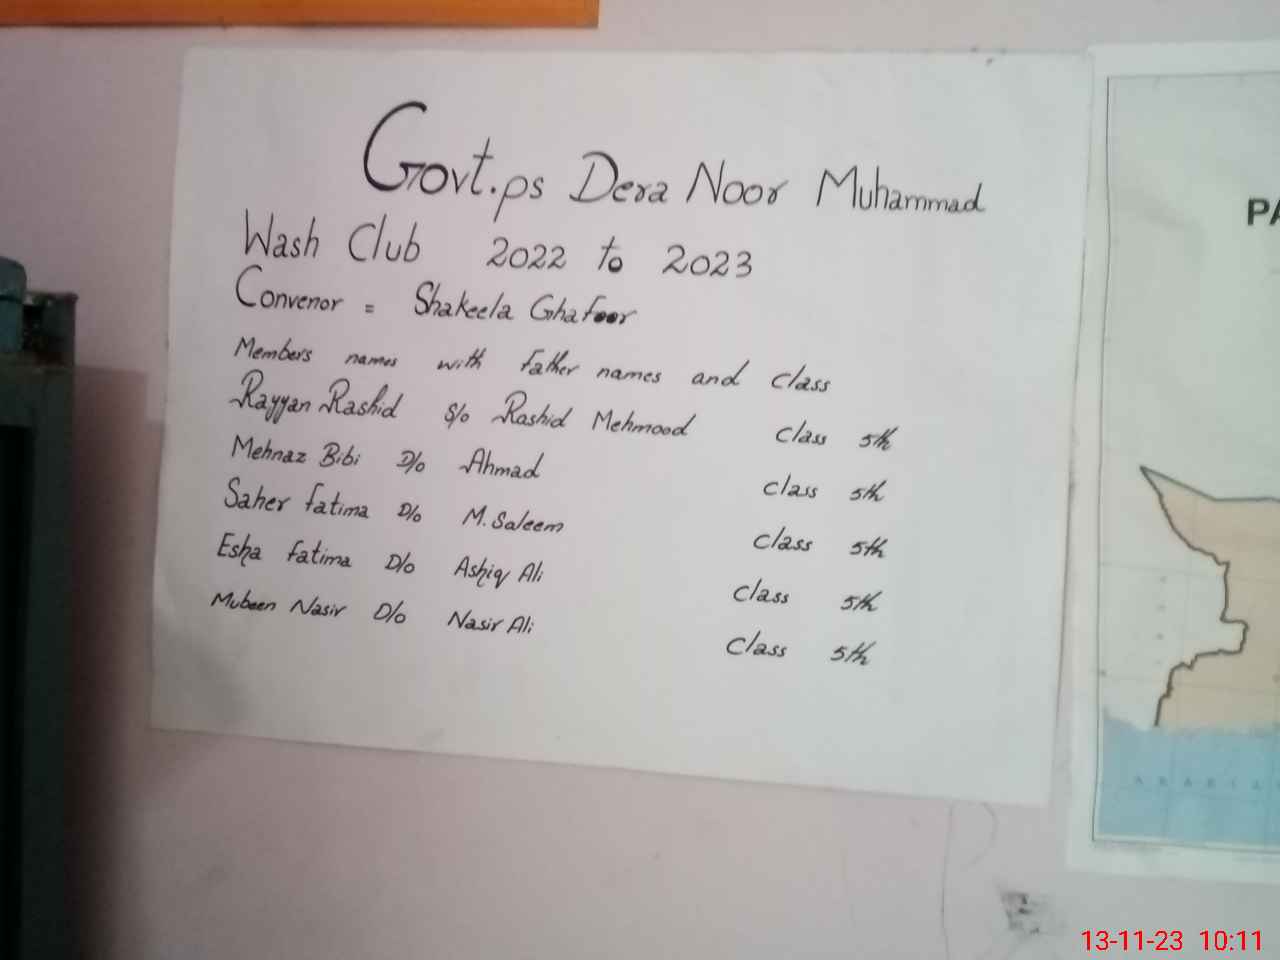 Govt.ps Dera Noor Muhammad
Wash Club 2022 to 2023
Convenor = Shakeela Ghafoor
Members names with father names and class
Rayyan Rashid S/o Rashid Mehmood class 5th
Mehnaz Bibi D/o Ahmad class 5th
Saher fatima D/o M. Saleem class 5th
Esha fatima D/o Ashiq Ali class 5th
Mubeen Nasir D/o Nasir Ali class 5th
PA
ARABIA
13-11-23 10:11